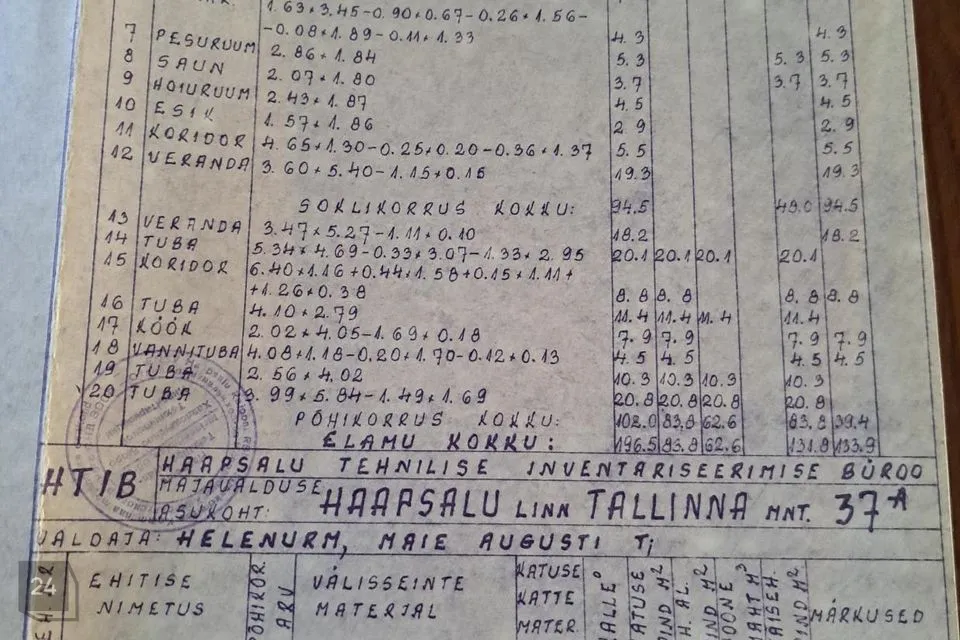 1.63×3.45-0.90×0.67-0.26×1.56-
7 PESURUUM -0.08×1.89-0.11×1.33 4.3 4.3
8 SAUN 2.86×1.84 5.3 5.3 5.3
9 HOIURUUM 2.07×1.80 3.7 3.7 3.7
10 ESIK 2.43×1.87 4.5 4.5
11 KORIDOR 1.57×1.86 2.9 2.9
12 VERANDA 4.65×1.30-0.25×0.20-0.36×1.37 5.5 5.5
3.60×5.40-1.15×0.15 19.3 19.3
SOKLIKORRUS KOKKU: 94.5 94.5
13 VERANDA 3.47×5.27-1.11×0.10 18.2 18.2
14 TUBA 5.34×4.69-0.33×3.07-1.33×2.95 20.1 20.1 20.1 20.1
15 KORIDOR 6.40×1.16+0.44×1.58+0.15×1.11+
+1.26×0.38 8.8 8.8 8.8 8.8
16 TUBA 4.10×2.79 11.4 11.4 11.4 11.4
17 KÖÖK 2.02×4.05-1.69×0.18 7.9 7.9 7.9 7.9
18 VANNITUBA 4.08×1.18-0.20×1.70-0.12×0.13 4.5 4.5 4.5 4.5
19 TUBA 2.56×4.02 10.3 10.3 10.3 10.3
20 TUBA 3.99×5.84-1.49×1.69 20.8 20.8 20.8 20.8
PÕHIKORRUS KOKKU: 102.0 83.8 62.6 83.8 39.4
ELAMU KOKKU: 196.5 83.8 62.6 131.8 133.9
HTIB HAAPSALU TEHNILISE INVENTARISEERIMISE BÜROO
MAJAVALDUSE
ASUKOHT: HAAPSALU LINN TALLINNA MNT. 37-A
VALDAJA: HELENURM, MAIE AUGUSTI T;
EHITISE
NIMETUS
PÕHIKOR.
ARV
VÄLISSEINTE
MATERJAL
KATUSE
KATTE
MATER.
MÄRKUSED
24